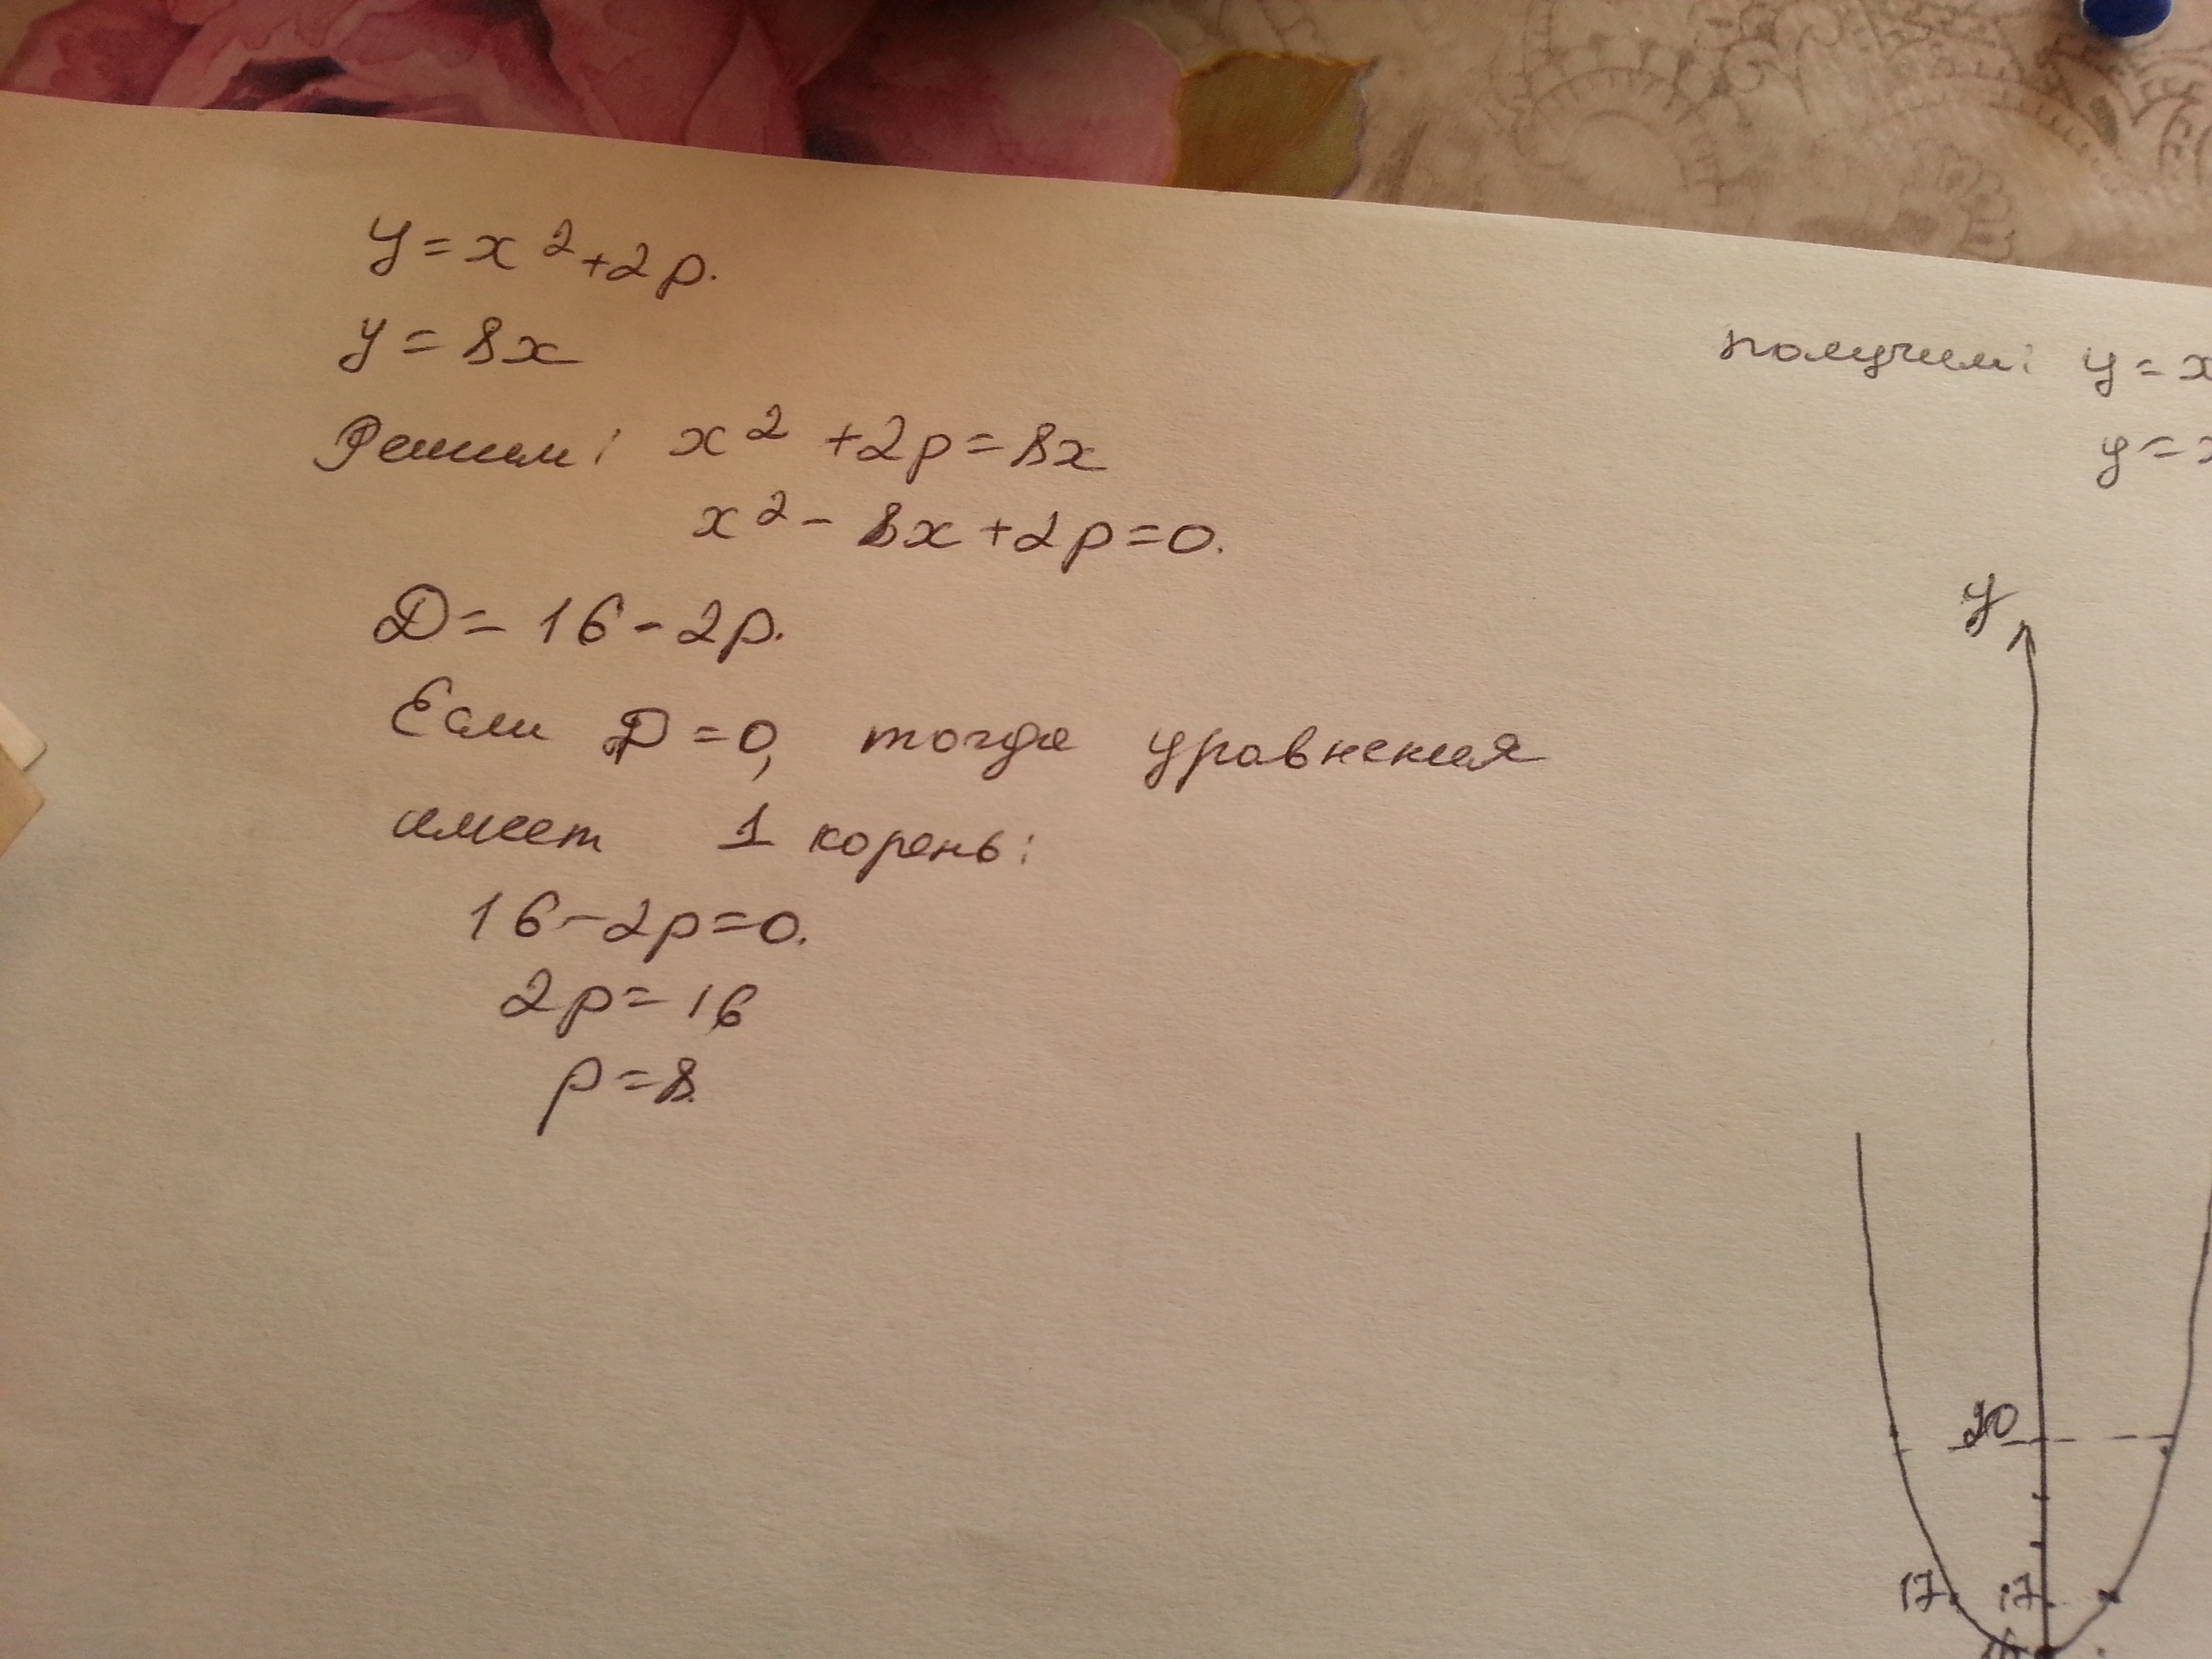 y = x² + 2p.
y = 8x
Решим: x² + 2p = 8x
x² - 8x + 2p = 0.
D = 16 - 2p.
Если D = 0, тогда уравнения
имеет 1 корень:
16 - 2p = 0.
2p = 16
p = 8.
получим: y = x
y = x
y
20
17 17
16